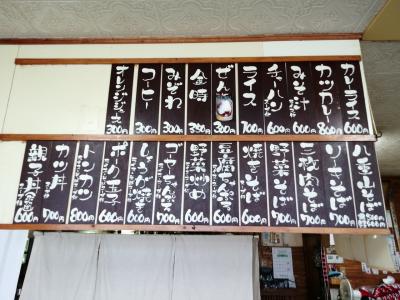 カレーライス 600円
カツカレー 800円
みそ汁 600円
チャーハン 600円
ライス 200円
ぜんざい
金時 350円
みぞれ 300円
コーヒー 300円
オレンジジュース 300円
八重山そば
ソーキそば 700円
三枚肉そば 700円
野菜そば 700円
焼きそば 600円
豆腐ちゃんぷる 600円
野菜炒め 600円
ゴーヤちゃんぷる 700円
しょうが焼き 600円
ポーク玉子 600円
トンカツ 800円
カツ丼 700円
親子丼 600円